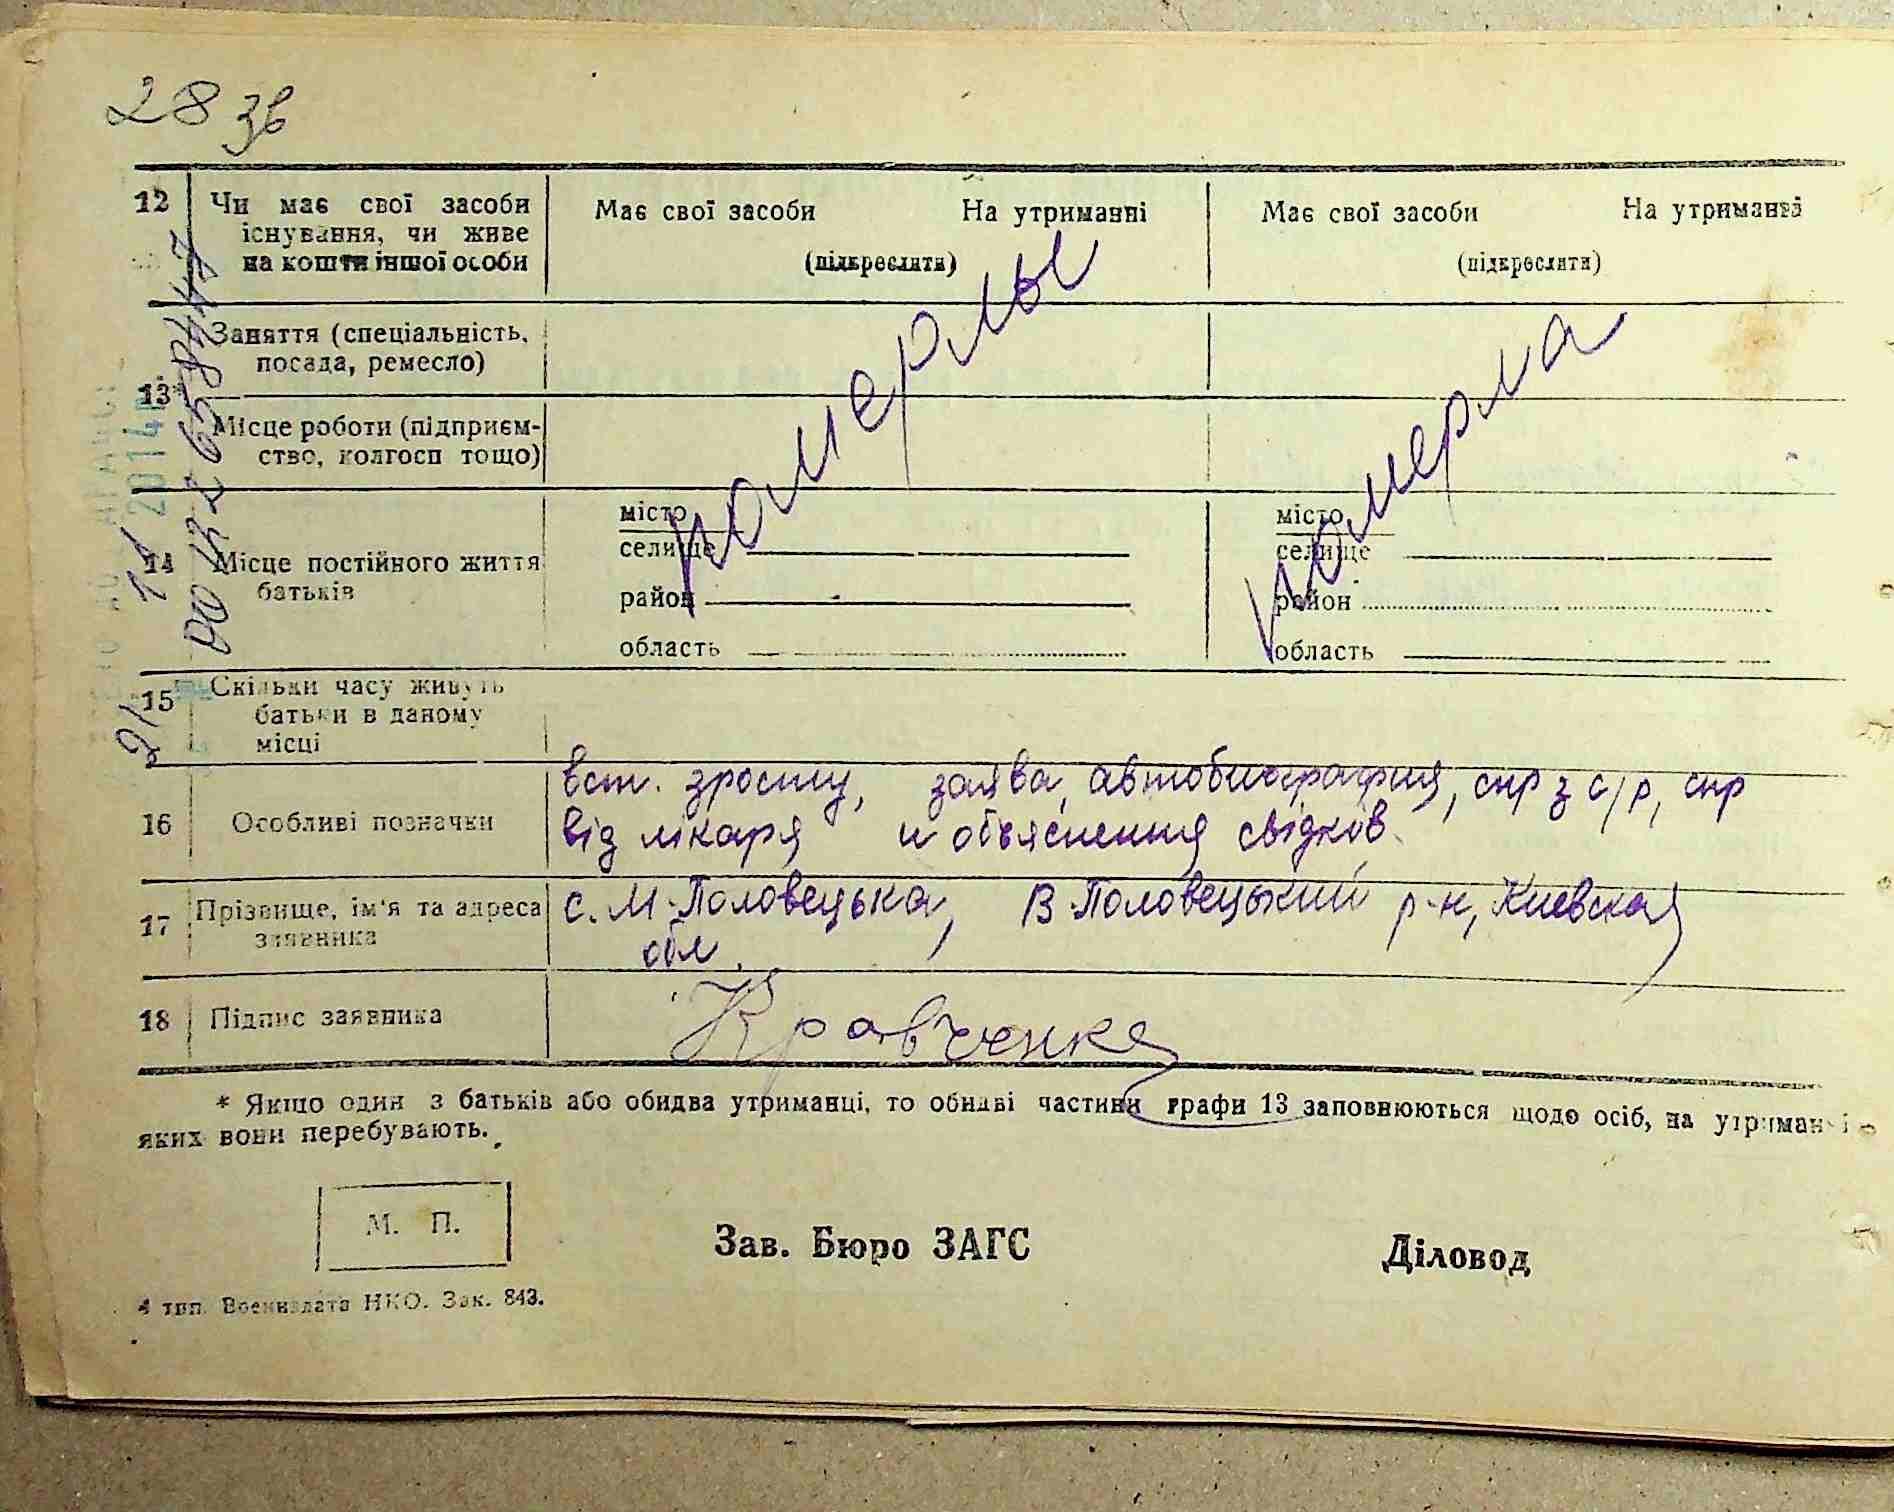 28 зв
12 Чи має свої засоби існування, чи живе на кошти іншої особи
Має свої засоби На утриманні
(підкреслити)
Має свої засоби На утриманні
(підкреслити)
13* Заняття (спеціальність, посада, ремесло)
Місце роботи (підприємство, колгосп тощо)
померлы
померла
14 Місце постійного життя батьків
місто
селище
район
область
місто
селище
район
область
15 Скільки часу живуть батьки в даному місці
16 Особливі позначки
вст. зросту, заява, автобиография, спр з с/р, спр
від лікаря и объяснення свідків.
17 Прізвище, ім'я та адреса заявника
с. М-Половецька, В-Половецький р-н, Киевская
обл.
18 Підпис заявника
Кравченко
* Якщо один з батьків або обидва утриманці, то обидві частини графи 13 заповнюються щодо осіб, на утриманні
яких вони перебувають.
М. П.
Зав. Бюро ЗАГС
Діловод
4 тип. Воениздата НКО. Зак. 843.
2014
21 11